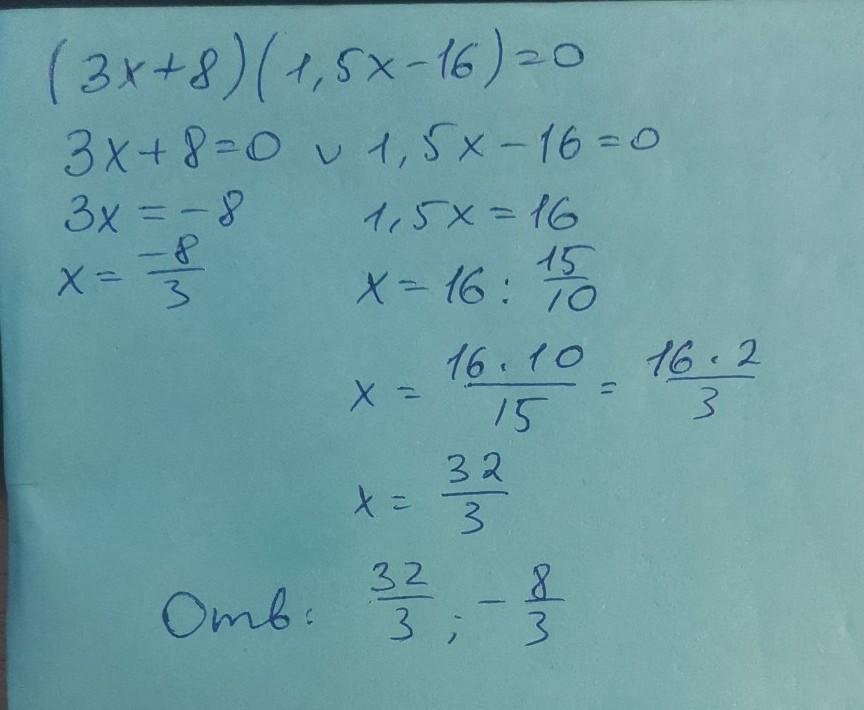 (3x+8)(1,5x-16)=0
3x+8=0 ∨ 1,5x-16=0
3x=-8 1,5x=16
x=-8/3 x=16:15/10
x=16·10/15=16·2/3
x=32/3
Отв: 32/3;-8/3